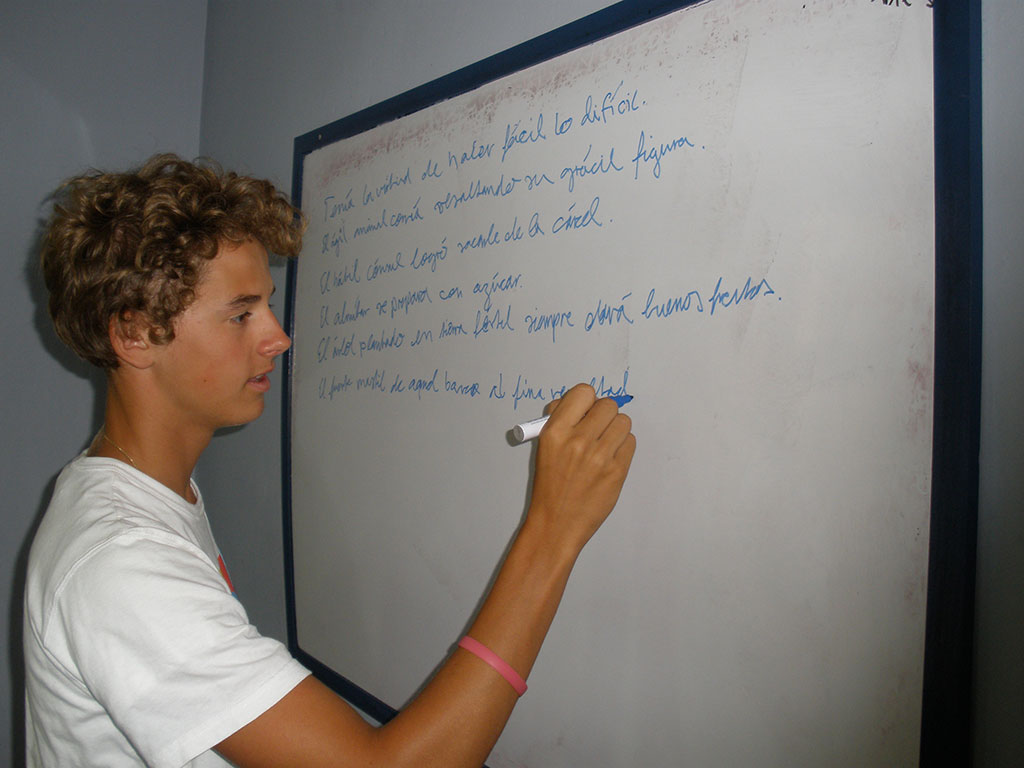 Tenía la virtud de hacer fácil lo difícil.
El ágil animal corría resaltando su grácil figura.
El hábil cónsul logró sacarle de la cárcel.
El almíbar se prepara con azúcar.
El árbol plantado en tierra fértil siempre dará buenos frutos.
El mástil de aquel barco al fina